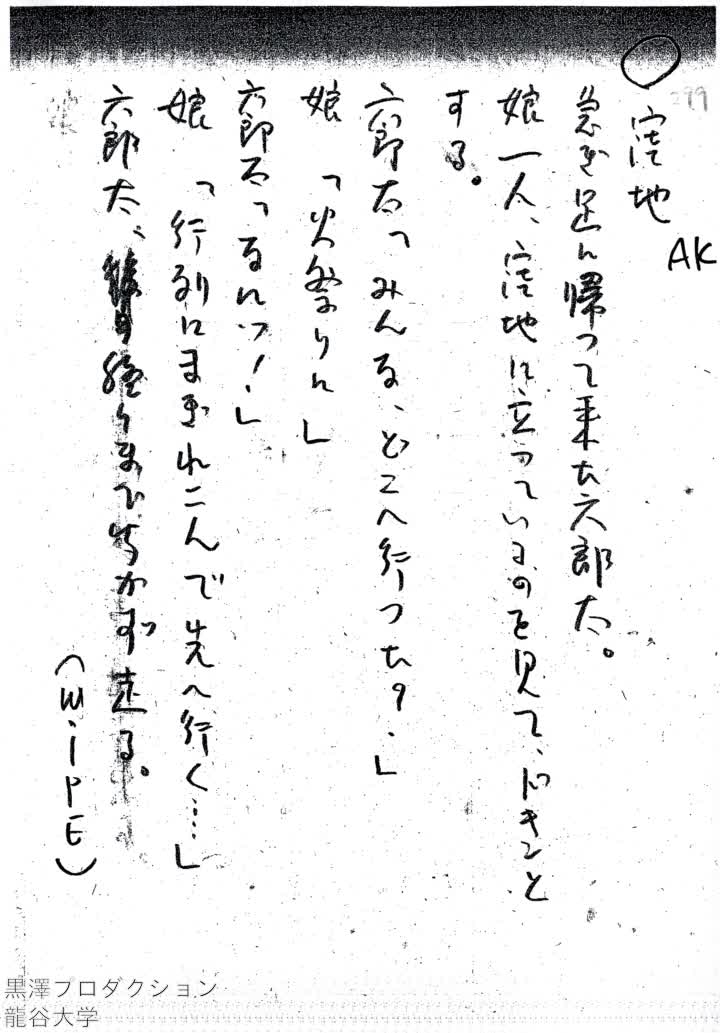 299
AK
○ 窪地
急ぎ足に帰って来た六郎太。
娘一人、窪地に立っているのを見て、ドキンと
する。
六郎太「みんな、どこへ行った?」
娘 「火祭りに」
六郎太「なにッ!」
娘 「行列にまぎれこんで先へ行く…」
六郎太、終りまで
走る。
(WIPE)
黒澤プロダクション
龍谷大学